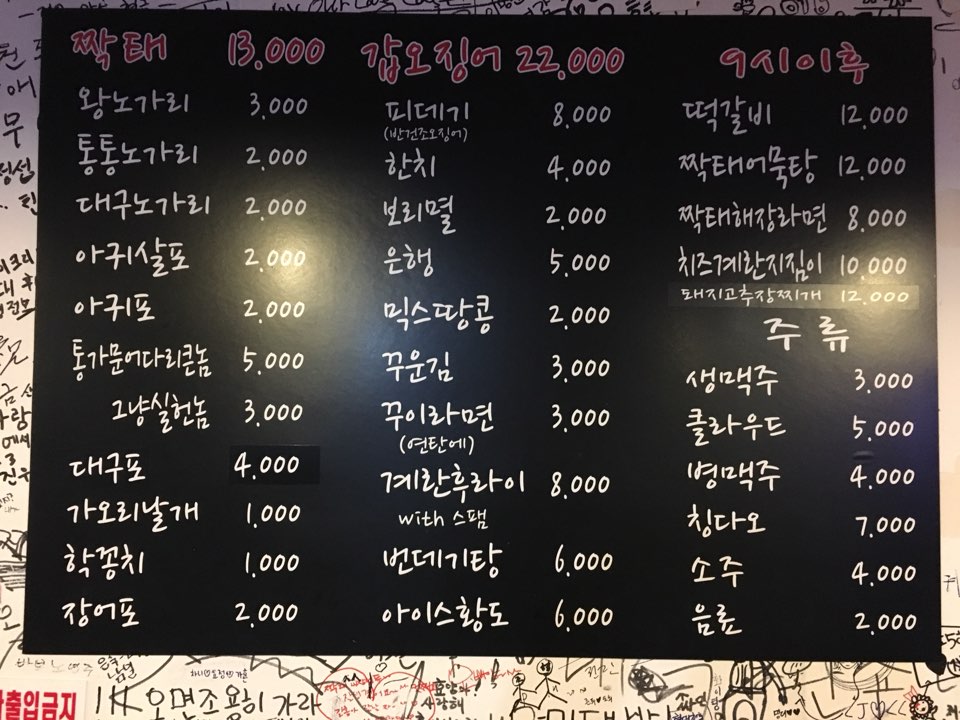 짝태 13,000
왕노가리 3,000
통통노가리 2,000
대구노가리 2,000
아귀살포 2,000
아귀포 2,000
통가문어다리큰놈 5,000
그냥실헌놈 3,000
대구포 4,000
가오리날개 1,000
학꽁치 1,000
장어포 2,000
갑오징어 22,000
피데기 8,000
(반건조오징어)
한치 4,000
보리멸 2,000
은행 5,000
믹스땅콩 2,000
꾸운김 3,000
꾸이라면 3,000
(연탄에)
계란후라이 8,000
with 스팸
번데기탕 6,000
아이스황도 6,000
9시이후
떡갈비 12,000
짝태어묵탕 12,000
짝태해장라면 8,000
치즈계란지짐이 10,000
돼지고추장찌개 12,000
주류
생맥주 3,000
클라우드 5,000
병맥주 4,000
칭다오 7,000
소주 4,000
음료 2,000
출입금지
오면조용히 가라